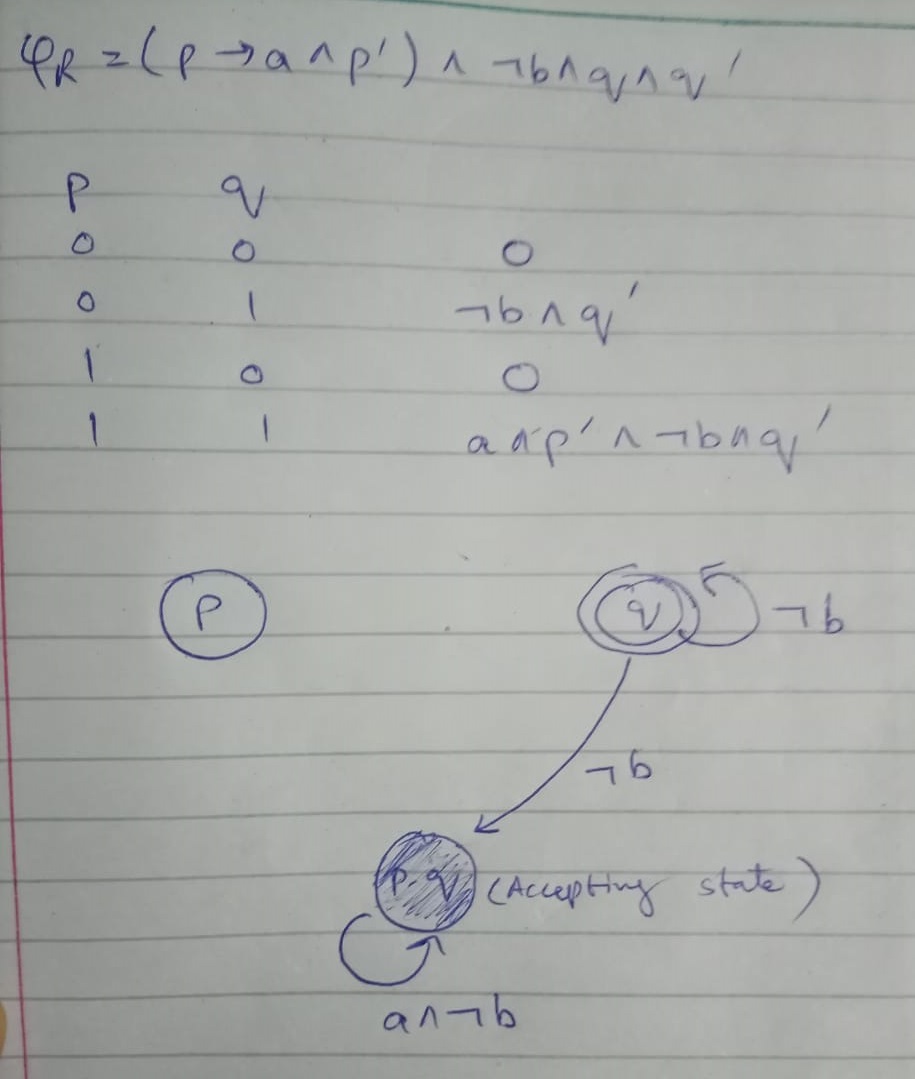 φR = (p → a ∧ p') ∧ ¬b ∧ q ∧ q'
p q
0 0 0
0 1 ¬b ∧ q'
1 0 0
1 1 a ∧ p' ∧ ¬b ∧ q'
p q ¬b
¬b
p q (Accepting state)
a ∧ ¬b